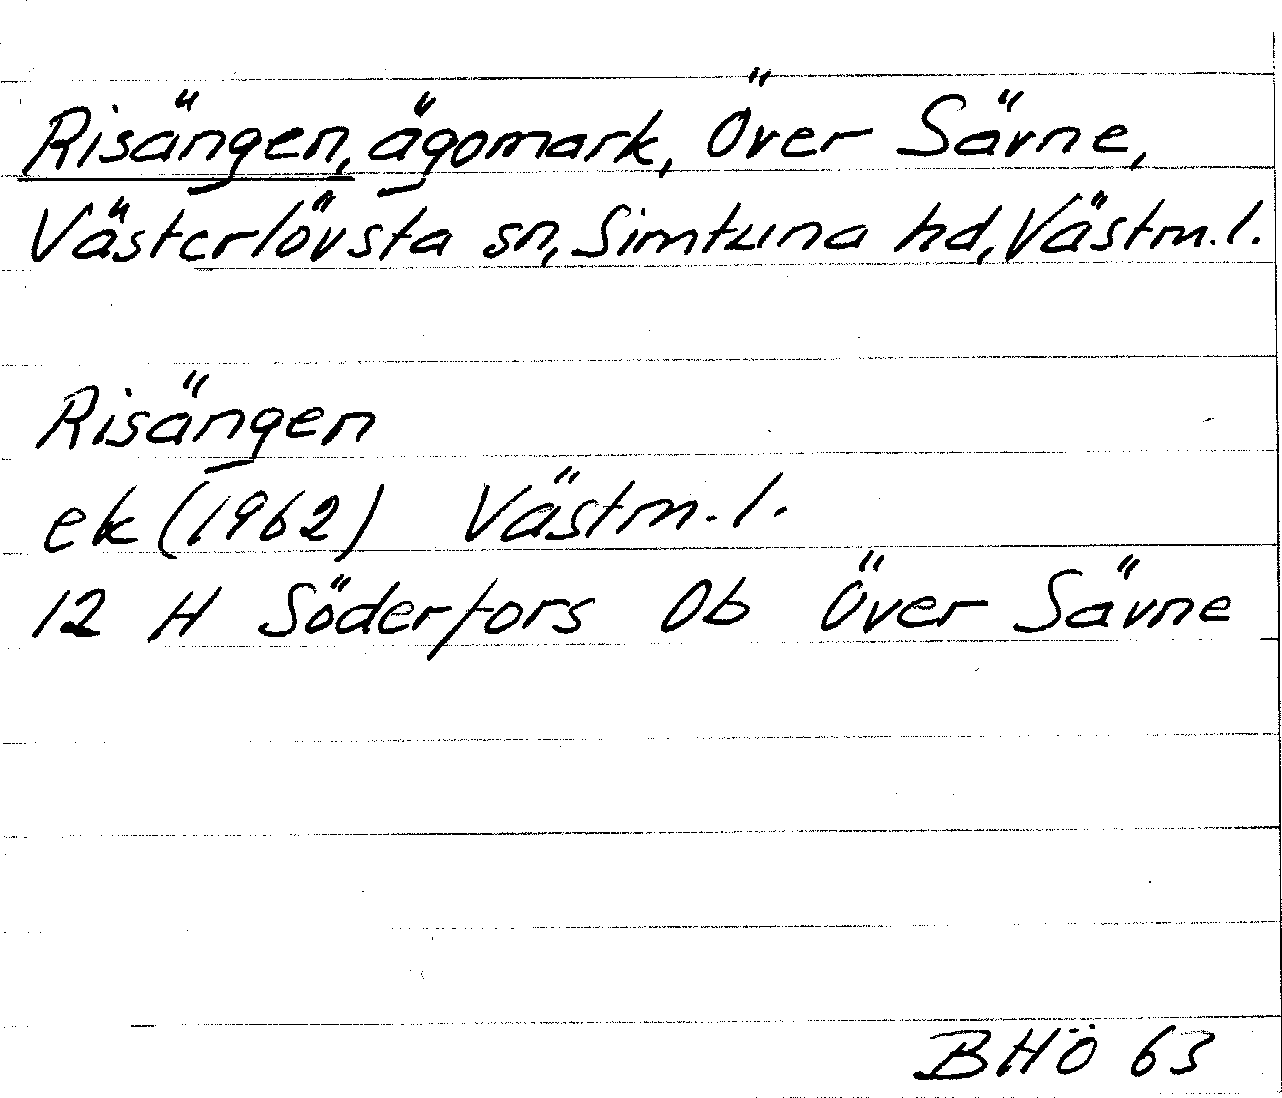 Risängen, ägomark, Över Sävne,
Västerlövsta sn, Simtuna hd, Västm. l.
Risängen
ek (1962) Västm. l.
12 H Söderfors 0b Över Sävne
BHÖ 63